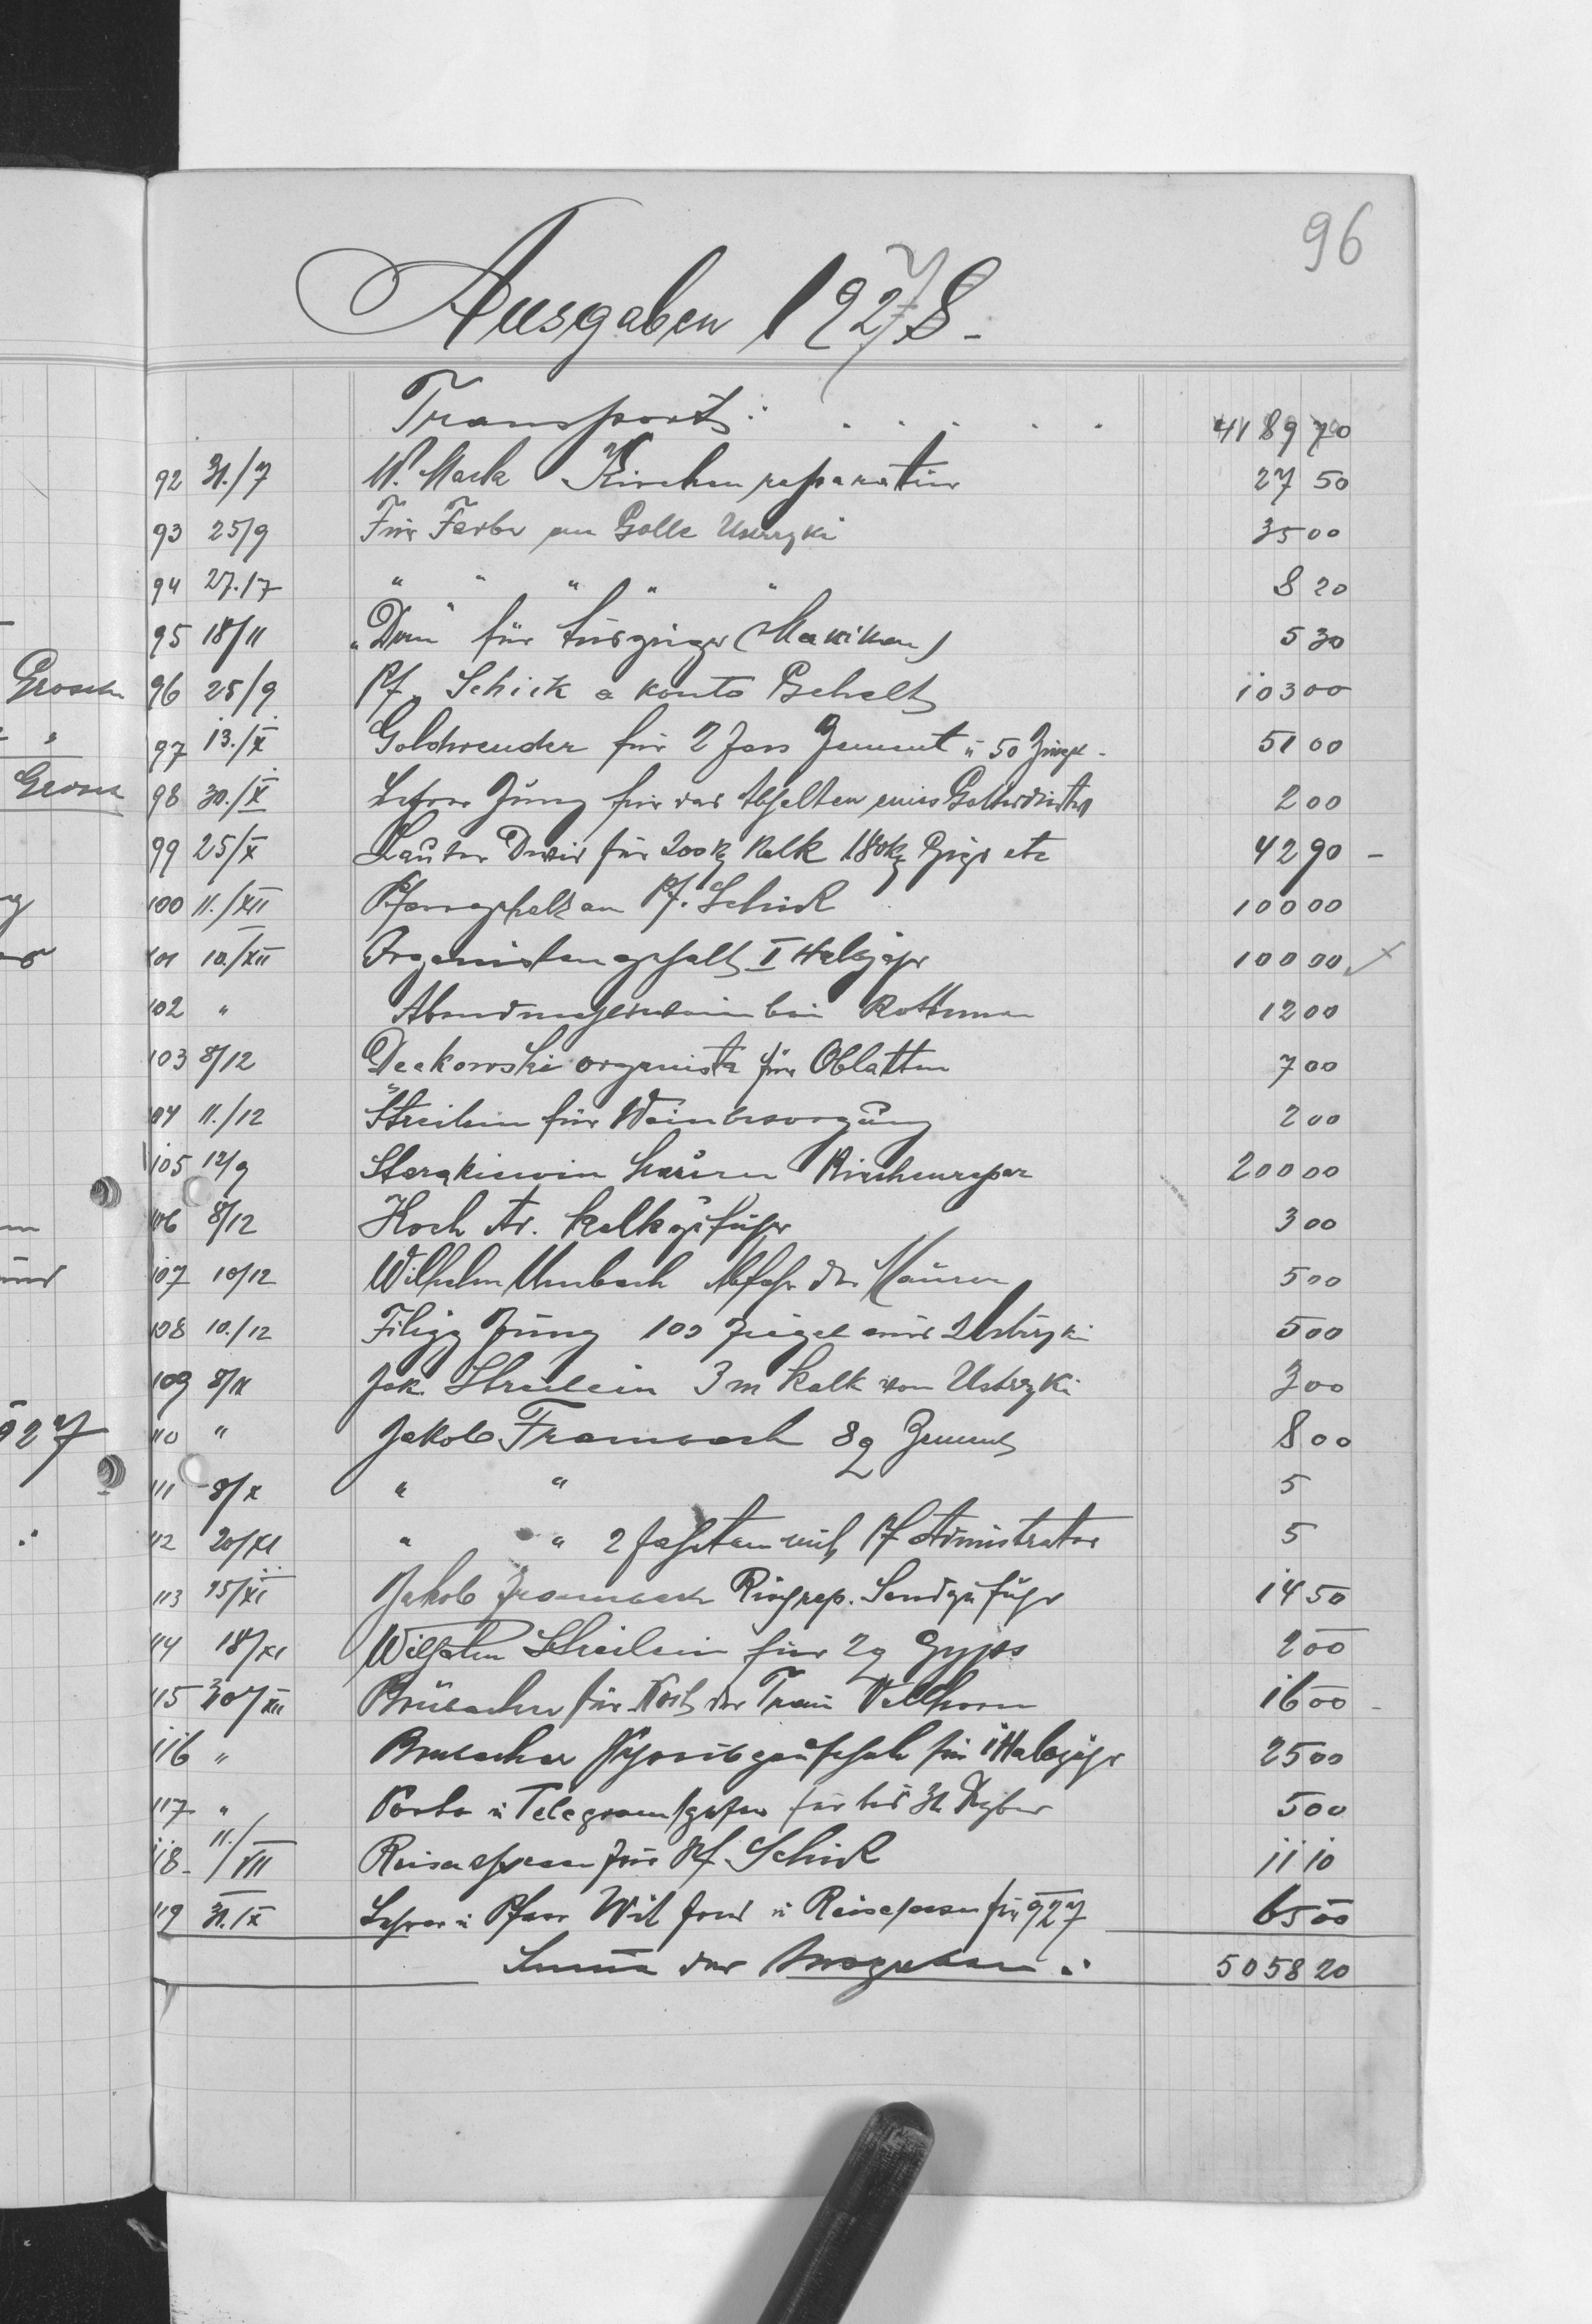 96
Ausgaben 1927 8.
Transport: . . . . . 4189 70
92 31./7 W. Mack Kirchenreparatur 27 50
93 25/9 Für Farbe an Golle Ustrzyki 35 00
94 27./7 " " " " " 8 20
95 18/11 "Dom" für (Makiken) 5 30
96 25/9 Pf. Schick a konto Gehalt 103 00
97 13./X Goldreuder für 2 Fass Zement u 50 51 00
98 30./X Lehrer Jung für das Abhalten eines Gottesdienstes 2 00
99 25/X für 200 kg Kalk 180 kg Gips etc 42 90 -
100 11./XII Pfarrgehalt an Pf. Schick 100 00
101 10./XII Organistengehalt I Halbjahr 100 00
102 " Abendmahlswein bei Rottman 12 00
103 8/12 Deckowski organista für Oblatten 7 00
104 11./12 Streilein für Weinbesorgung 2 00
105 12/9 Kirchenrepar 200 00
106 8/12 Koch Ar. Kalkzufuhr 3 00
107 10/12 Wilhelm Umbach Abfuhr der Maurer 5 00
108 10./12 Filipp Jung 100 Ziegel aus Ustrzyki 5 00
109 8/X Jak. Streilein 3 m Kalk von Ustrzyki 3 00
110 " Jakob Frambach 8 q Zement 8 00
111 8/X " " 5
112 20/XI " " 2 Fahrten mit Pf Administrator 5
113 25/XI Jakob Frambach Sandzufuhr 14 50
114 18/XI Wilhelm Streilein für 2 q Gyps 2 00
115 30/XII Brubacher für Kost der Frau Vellhorn 16 00 -
116 " Brubacher für I Halbjahr 25 00
117 " Porto u Telegram für bis 31 Dezber 5 00
118 11./VII Reisespesen für Pf. Schick 11 10
119 31./IX Lehrer u Pfarr Wit fond u Reisespesen für 927 65 00
Summe der Ausgaben: 5058 20
Grosch
"
Grosch
927